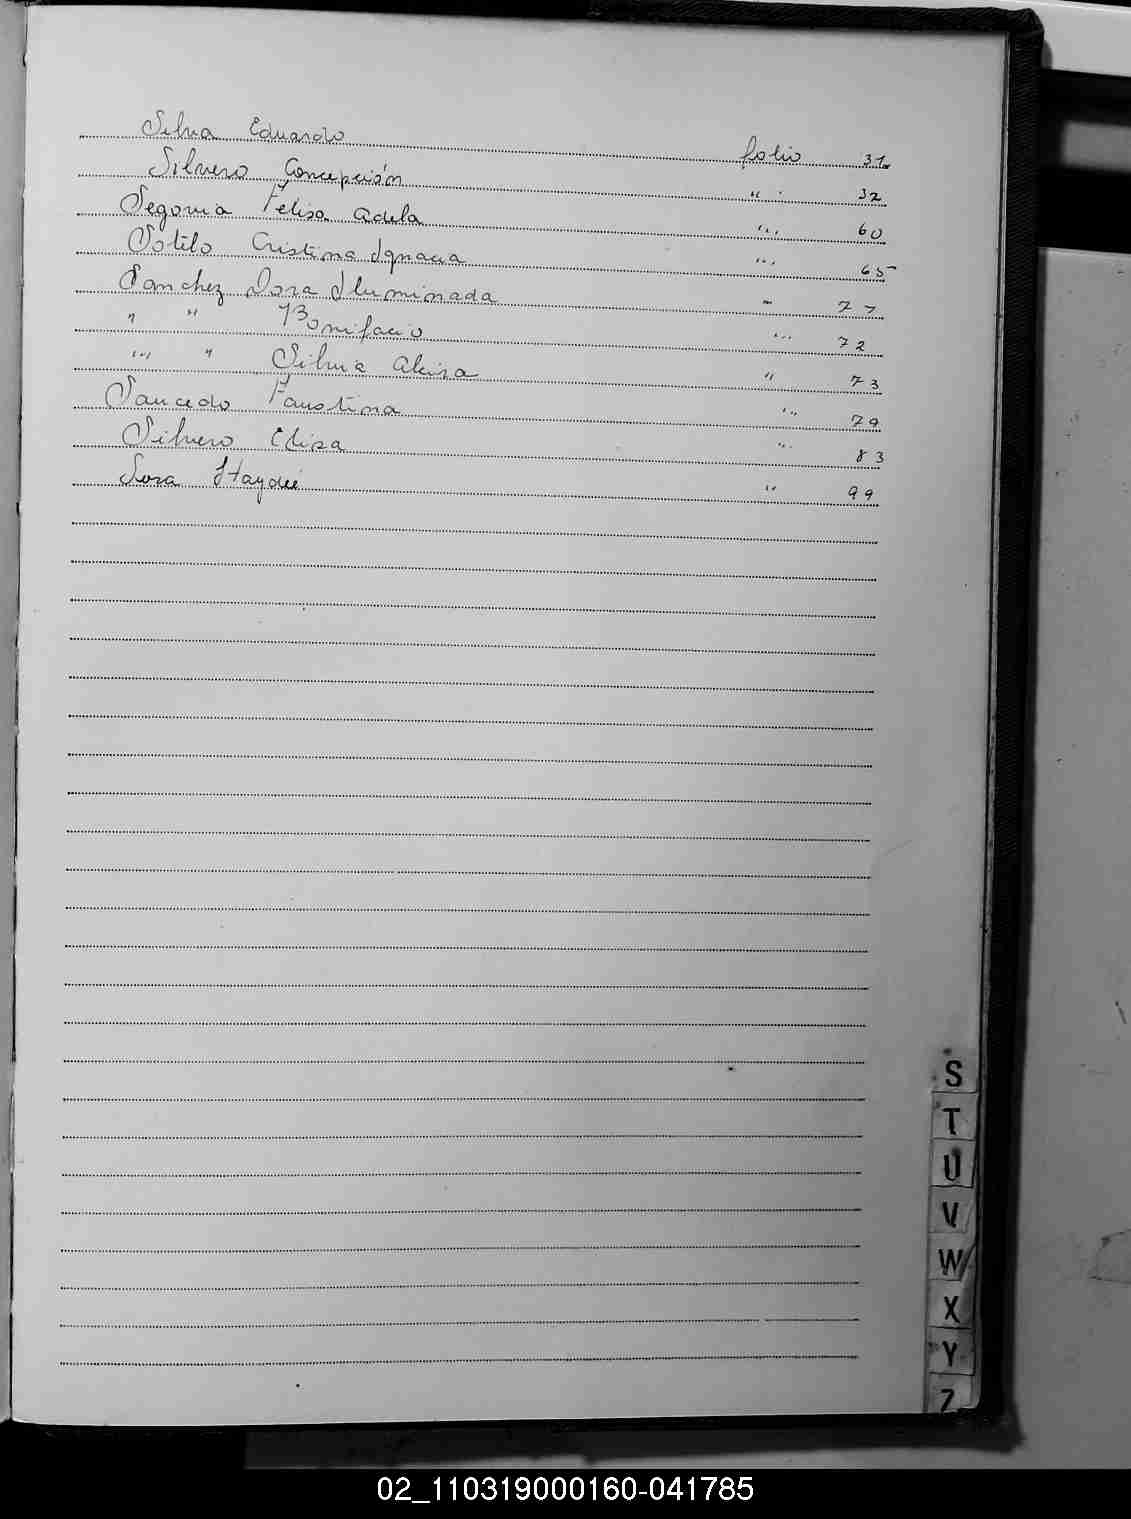 Silva Eduardo folio 31
Silvero Concepción " 32
Segovia Felisa Adela " 60
Sotelo Cristina Ignacia " 65
Sanchez Dora Iluminada " 71
" " Bonifacio " 72
" " Silvia Alicia " 73
Saucedo Faustina " 79
Silvero Elisa " 83
Sosa Haydeé " 99
S
T
U
V
W
X
Y
Z
02_110319000160-041785